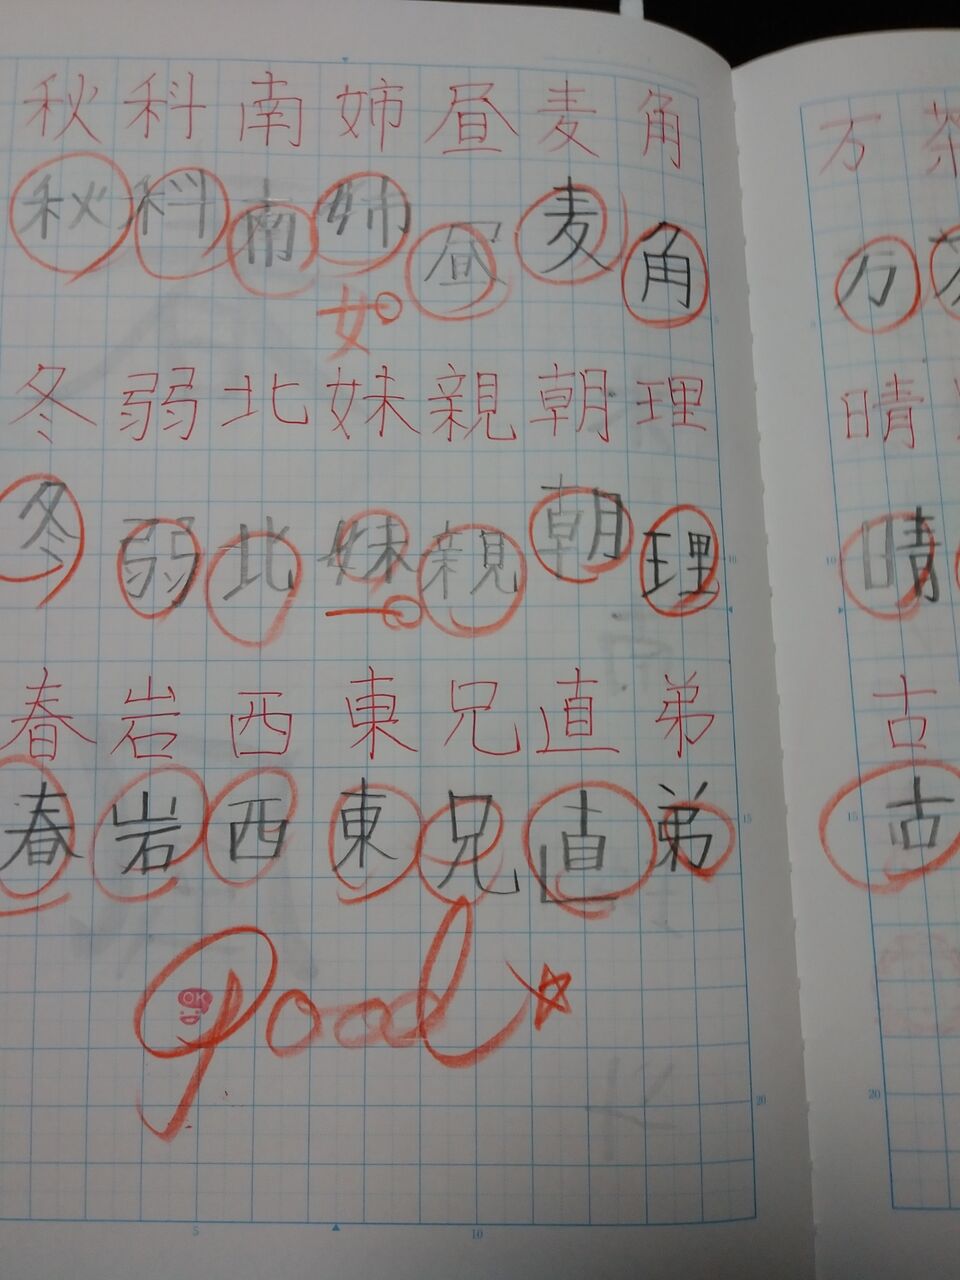 秋科南姉昼麦角
秋科南姉昼麦角
女
冬弱北妹親朝理
冬弱北妹親朝理
春岩西東兄直弟
春岩西東兄直弟
good
OK
5
10
10
15
20
万茶
万茶
晴
晴
古
古
10
15
20